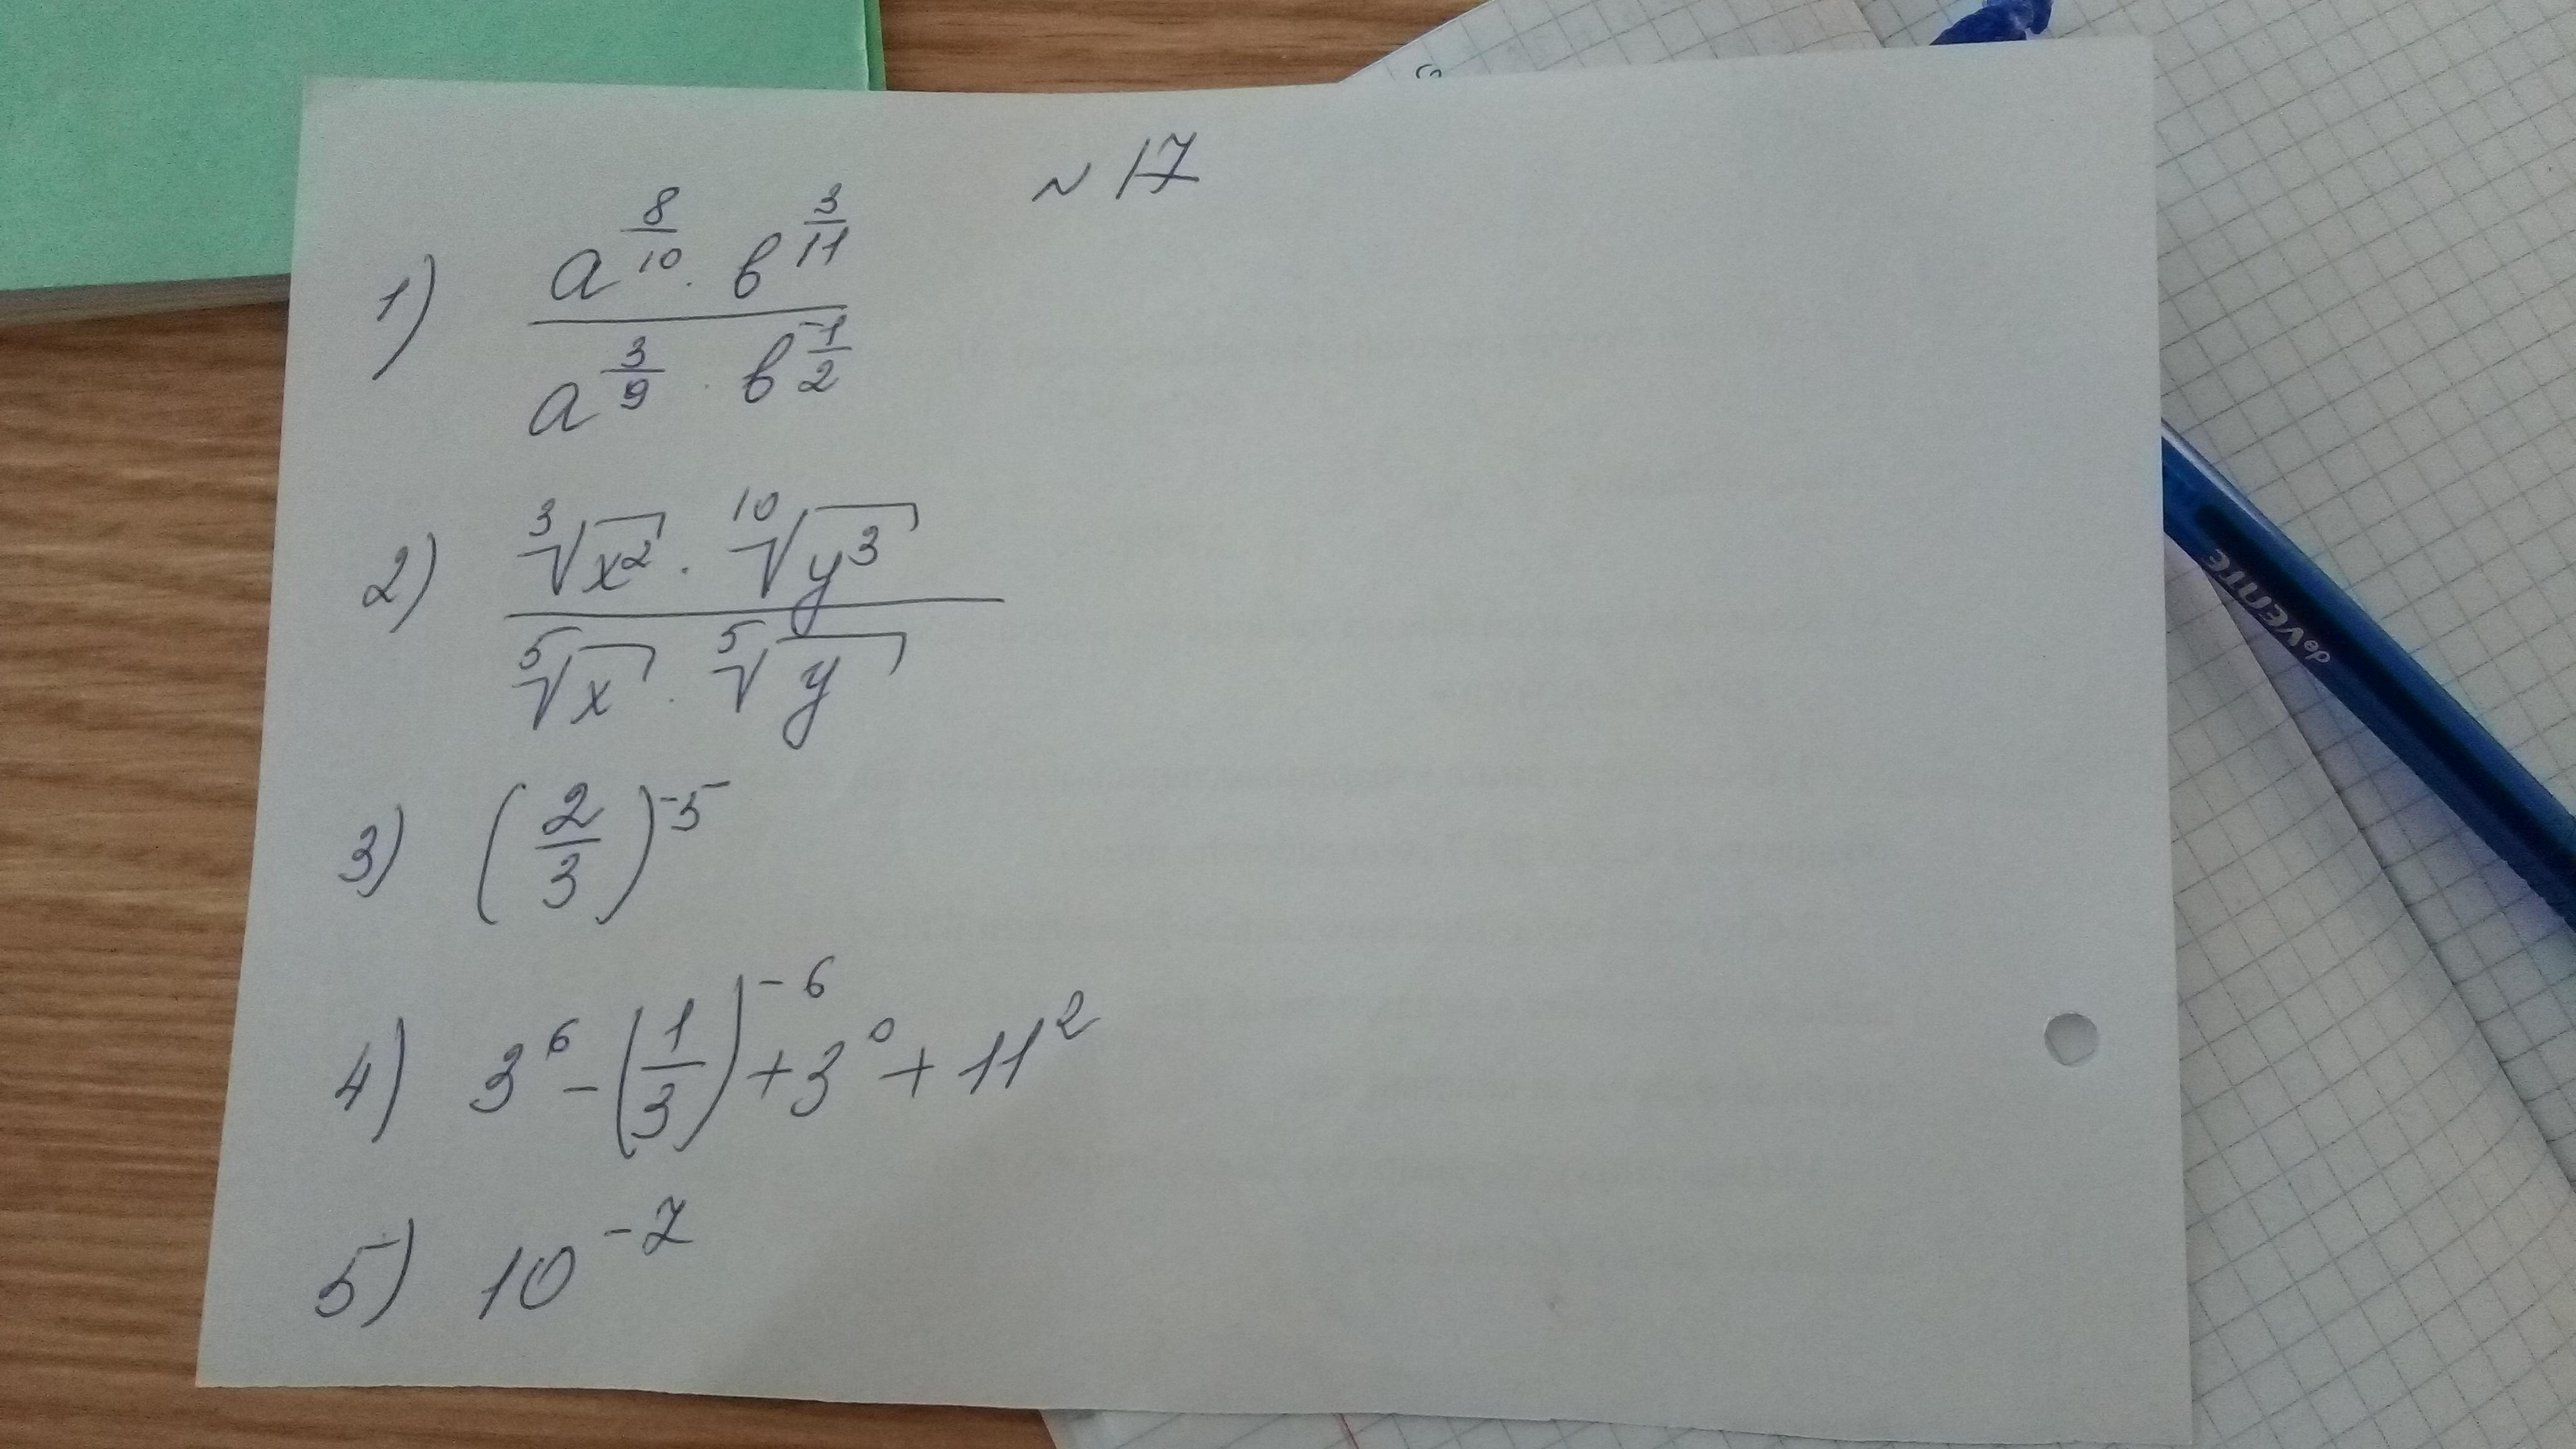 № 17
1) \frac{a^{\frac{8}{10}} \cdot b^{\frac{3}{11}}}{a^{\frac{3}{9}} \cdot b^{\frac{-1}{2}}}
2) \frac{\sqrt[3]{x^2} \cdot \sqrt[10]{y^3}}{\sqrt[5]{x} \cdot \sqrt[5]{y}}
3) (\frac{2}{3})^{-5}
4) 3^6 - (\frac{1}{3})^{-6} + 3^0 + 11^2
5) 10^{-7}
deVENTE